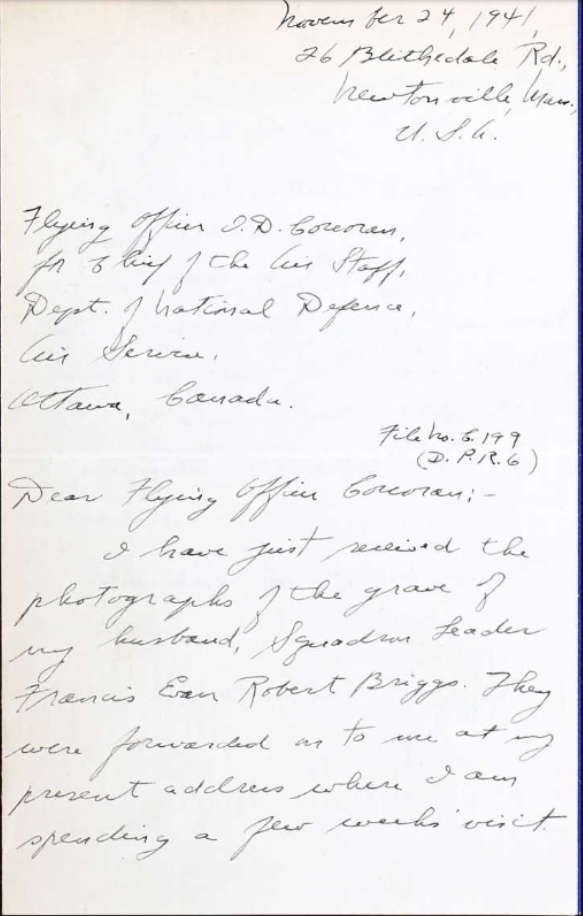 November 24, 1941,
26 Blithedale Rd.,
Newtonville, Mass.,
U.S.A.
Flying Officer I.D. Corcoran,
for Chief of the Air Staff,
Dept. of National Defence,
Air Service,
Ottawa, Canada.
File No. C.199
(D.P.R.6)
Dear Flying Officer Corcoran:-
I have just received the
photographs of the grave of
my husband, Squadron Leader
Francis Evan Robert Briggs. They
were forwarded on to me at my
present address where I am
spending a few weeks' visit.